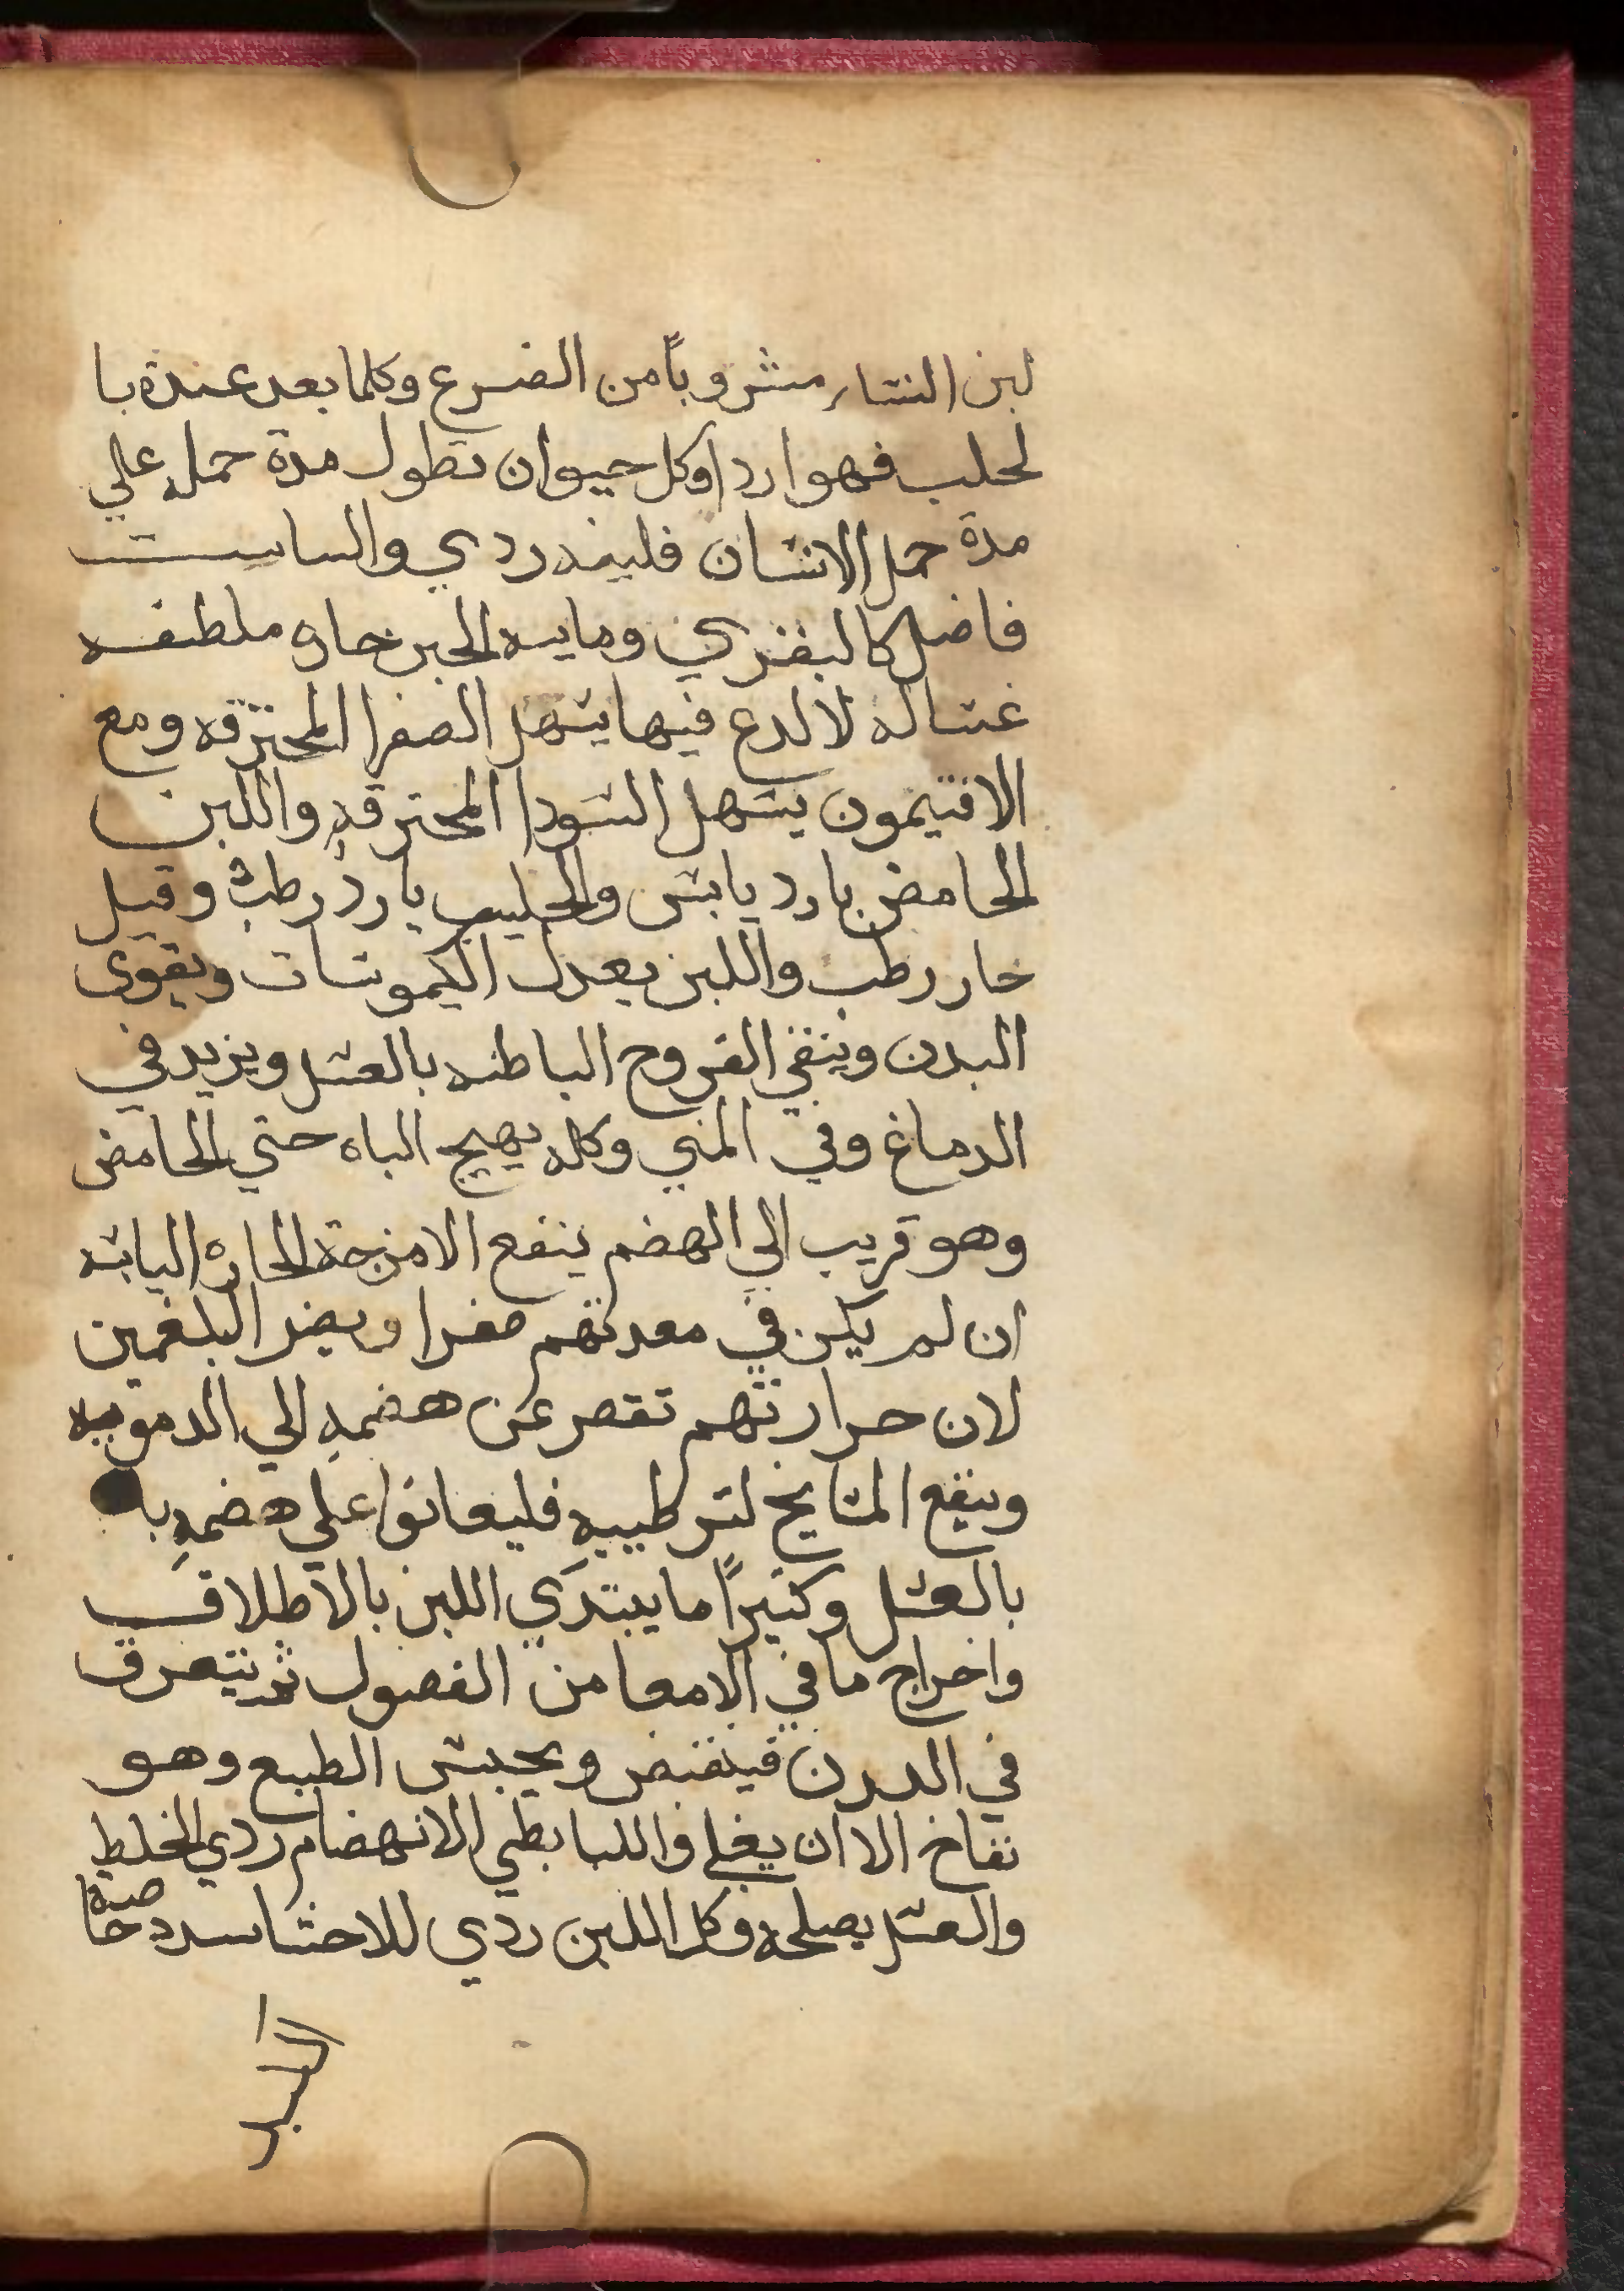 لبن النسا مشروباً من الضرع وكلما بعد عندة با
لحلب فهو اردا وكل حيوان تطول مدة حمله علي
مدة حمل الانسان فلبنه ردي والمناسب
فاضل كالبقري ومايية الجبن حاره ملطفه
غساله لا لدع فيها يسهل الصفرا المحترقه ومع
الافتيمون يسهل السودا المحترقهِ واللبن
الحامض بارد يابس والحليب بارد رطب وقيل
حار رطب واللبن يعدل الكيموسات ويقوي
البدن وينقي القروح الباطنه بالعسل ويزيد في
الدماغ وفي المني وكله يهيج الباه حتي الحامض
وهو قريب الي الهضم ينفع الامزجة الحاره اليابسه
ان لم يكن في معدتهم صفرا ويضر البلغمين
لان حرارتهم تقصر عن هضمهِ الي الدمويه
وينفع المشايخ لترطيبهِ فليعانوا علي هضمهِ با
بالعسل وكثيراً ما يبتدي اللبن بالاطلاق
واخراج ما في الامعا من الفضول ثم يتصرف
في البدن فيقبض ويحبس الطبع وهو
نفاخ الا ان يغلي واللبا بطي الانهضام ردي الخلط
والعسل يصلحه وكل اللبن ردي للاحشا سدد خاصة